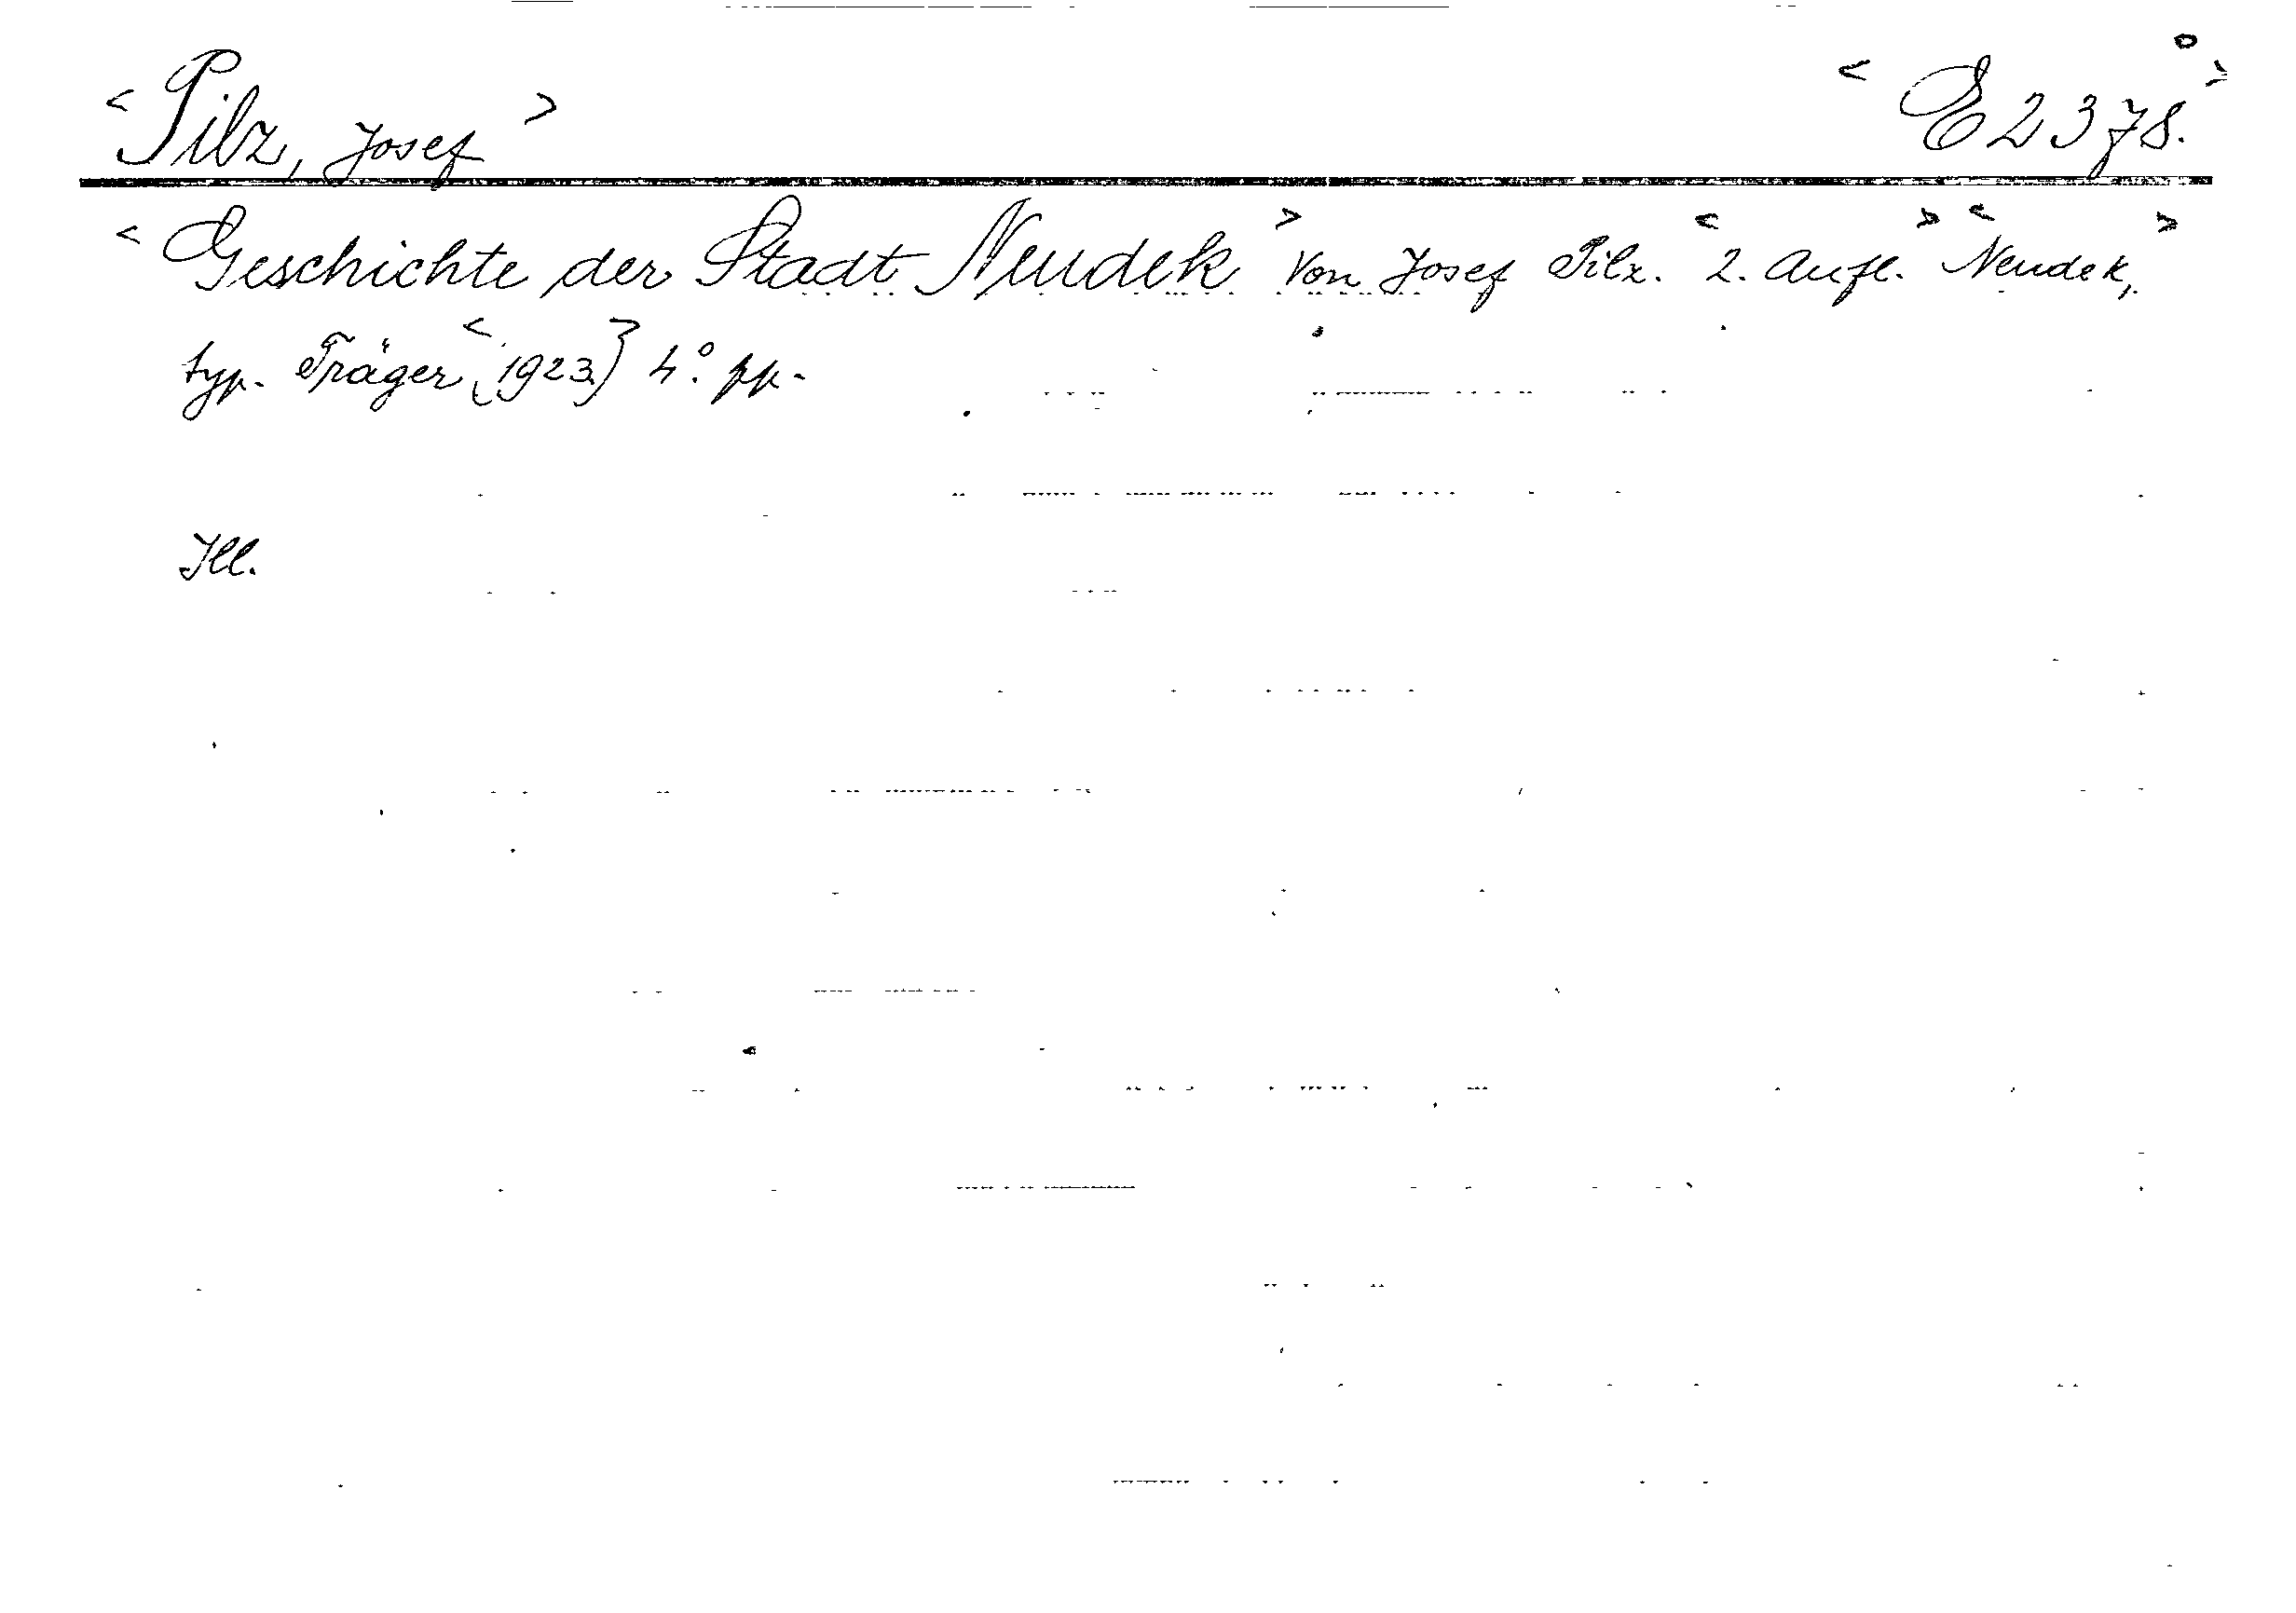 <Pilz, Josef> <E 2378.°>
<Geschichte der Stadt Neudek> Von Josef Pilz. <2. Aufl.> <Neudek,>
typ. Träger <[1923.]> 4°. pp.
Ill.